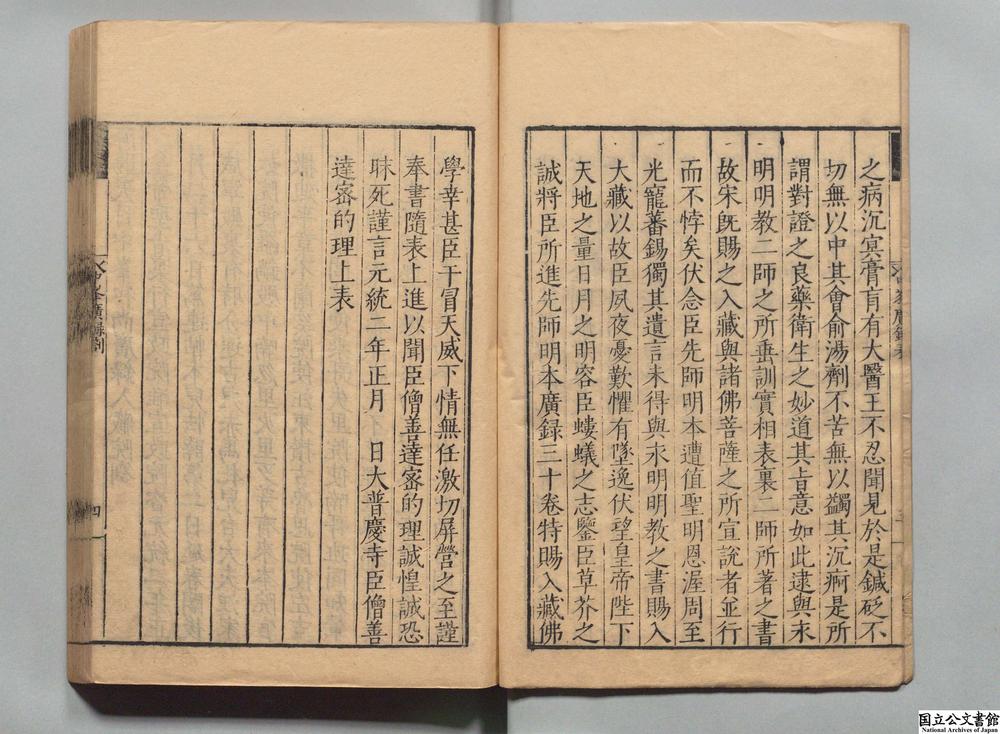 之病沉冥膏肓有大醫王不忍聞見於是鍼砭不
切無以中其會俞湯劑不苦無以蠲其沉痾是所
謂對證之良藥衛生之妙道其旨意如此逮與永
明明教二師之所垂訓實相表裏二師所著之書
故宋旣賜之入藏與諸佛菩薩之所宣說者並行
而不悖矣伏念臣先師明本遭值聖明恩渥周至
光寵蕃錫獨其遺言未得與永明明教之書賜入
大藏以故臣夙夜憂歎懼有墜逸伏望皇帝陛下
天地之量日月之明容臣螻蟻之志鑒臣草芥之
誠將臣所進先師明本廣録三十卷特賜入藏佛
學幸甚臣干冒天威下情無任激切屏營之至謹
奉書隨表上進以聞臣僧善達密的理誠惶誠恐
昧死謹言元統二年正月 日大普慶寺臣僧善
達密的理上表
四
国立公文書館
National Archives of Japan